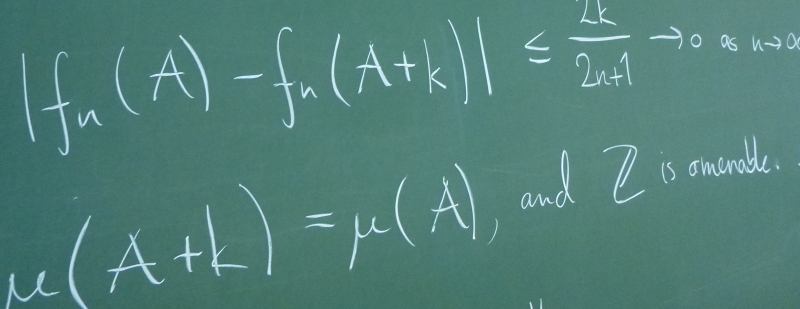 |fₙ(A) − fₙ(A+k)| ≤ 2k/2n+1 → 0 as n→∞
μ(A+k) = μ(A), and ℤ is amenable.